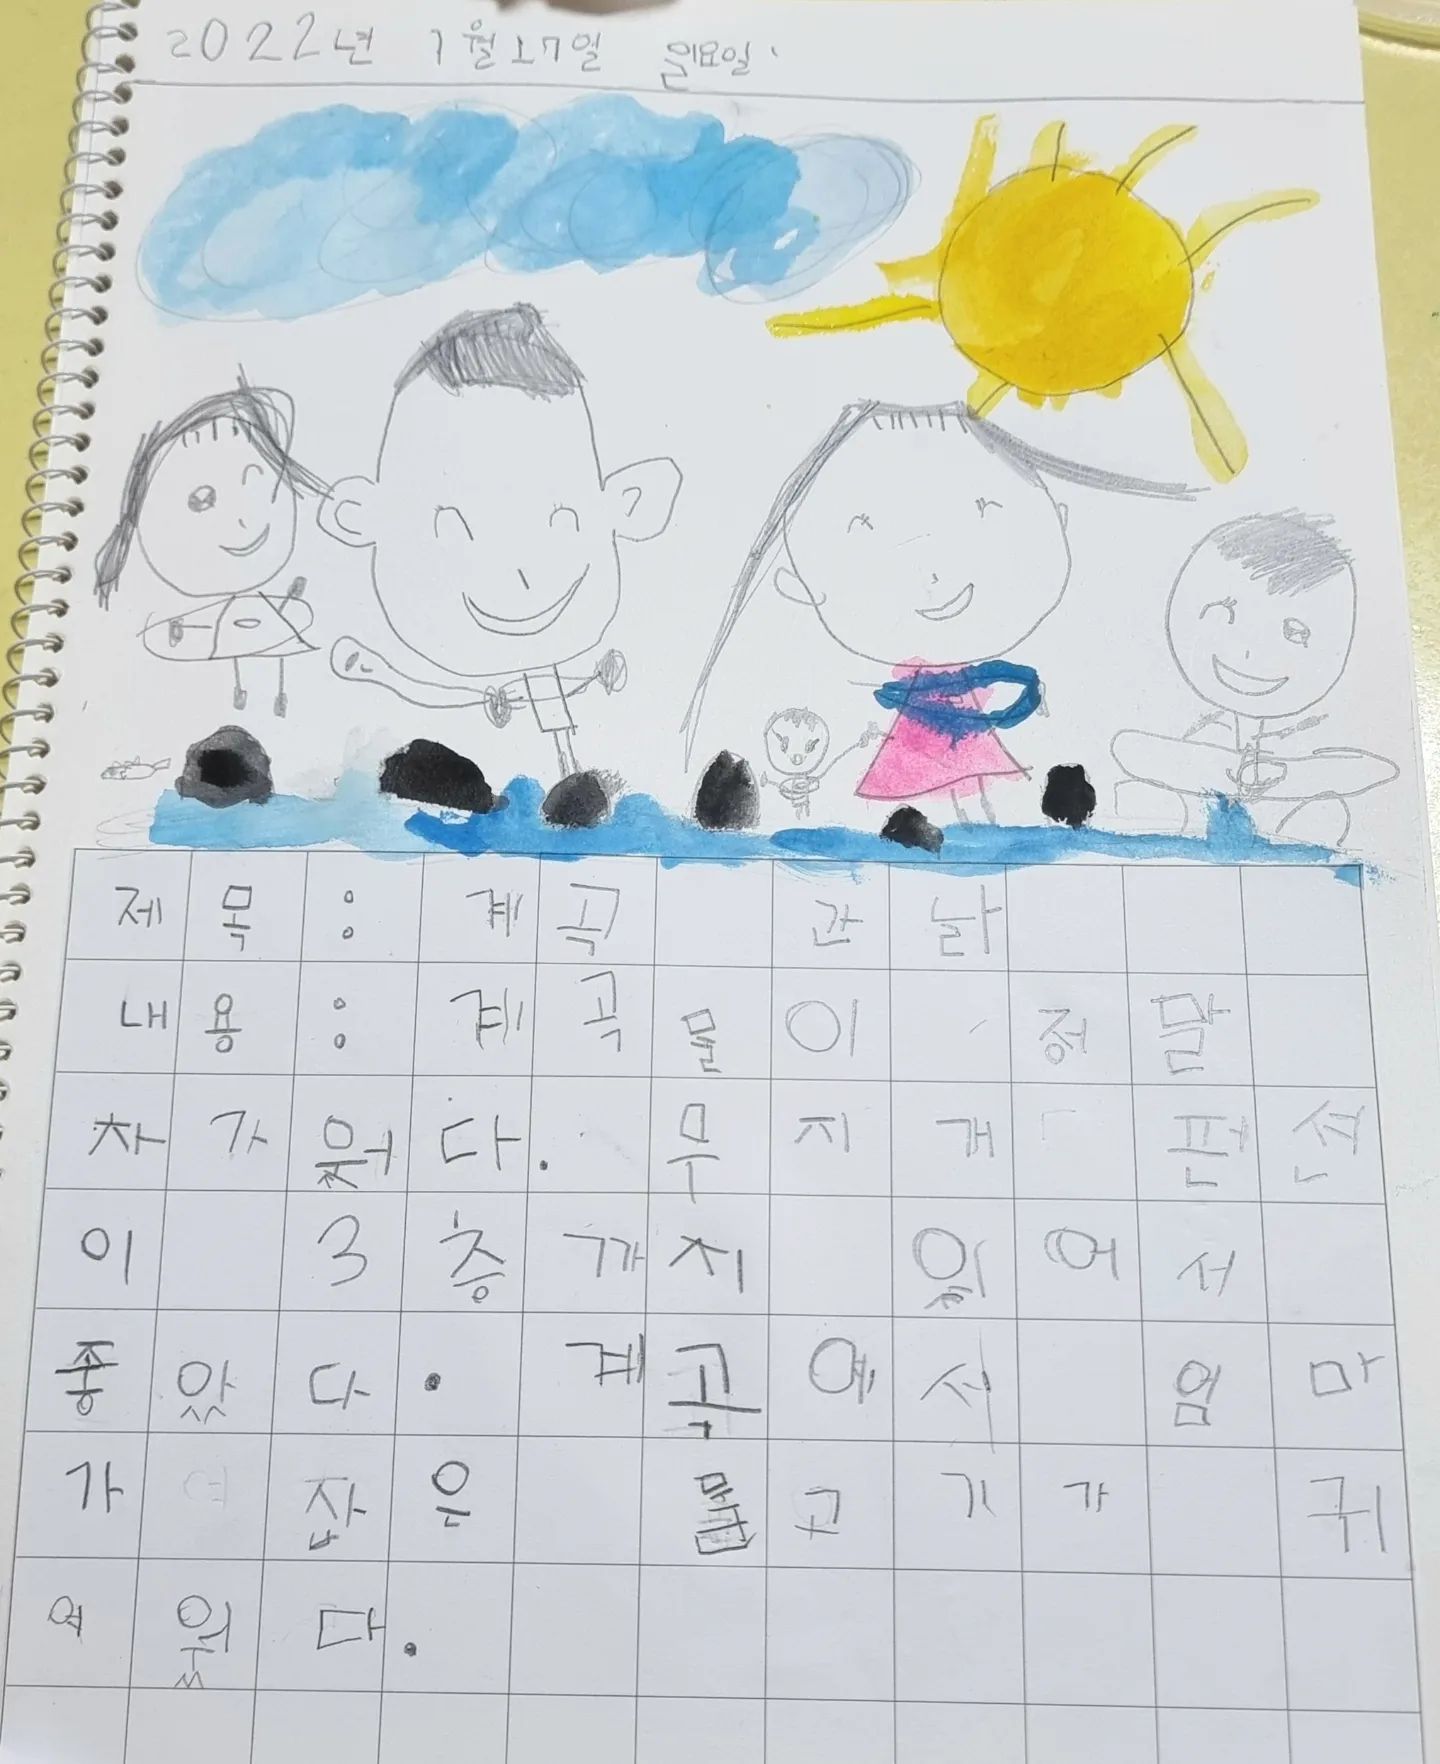 2022년 1월 17일 월요일
제목: 계곡 간날
내용: 계곡물이 정말
차가웠다. 무지개 펀션
이 3층까지 있어서
좋았다. 계곡에서 엄마
가 잡은 물고기가 귀
여웠다.